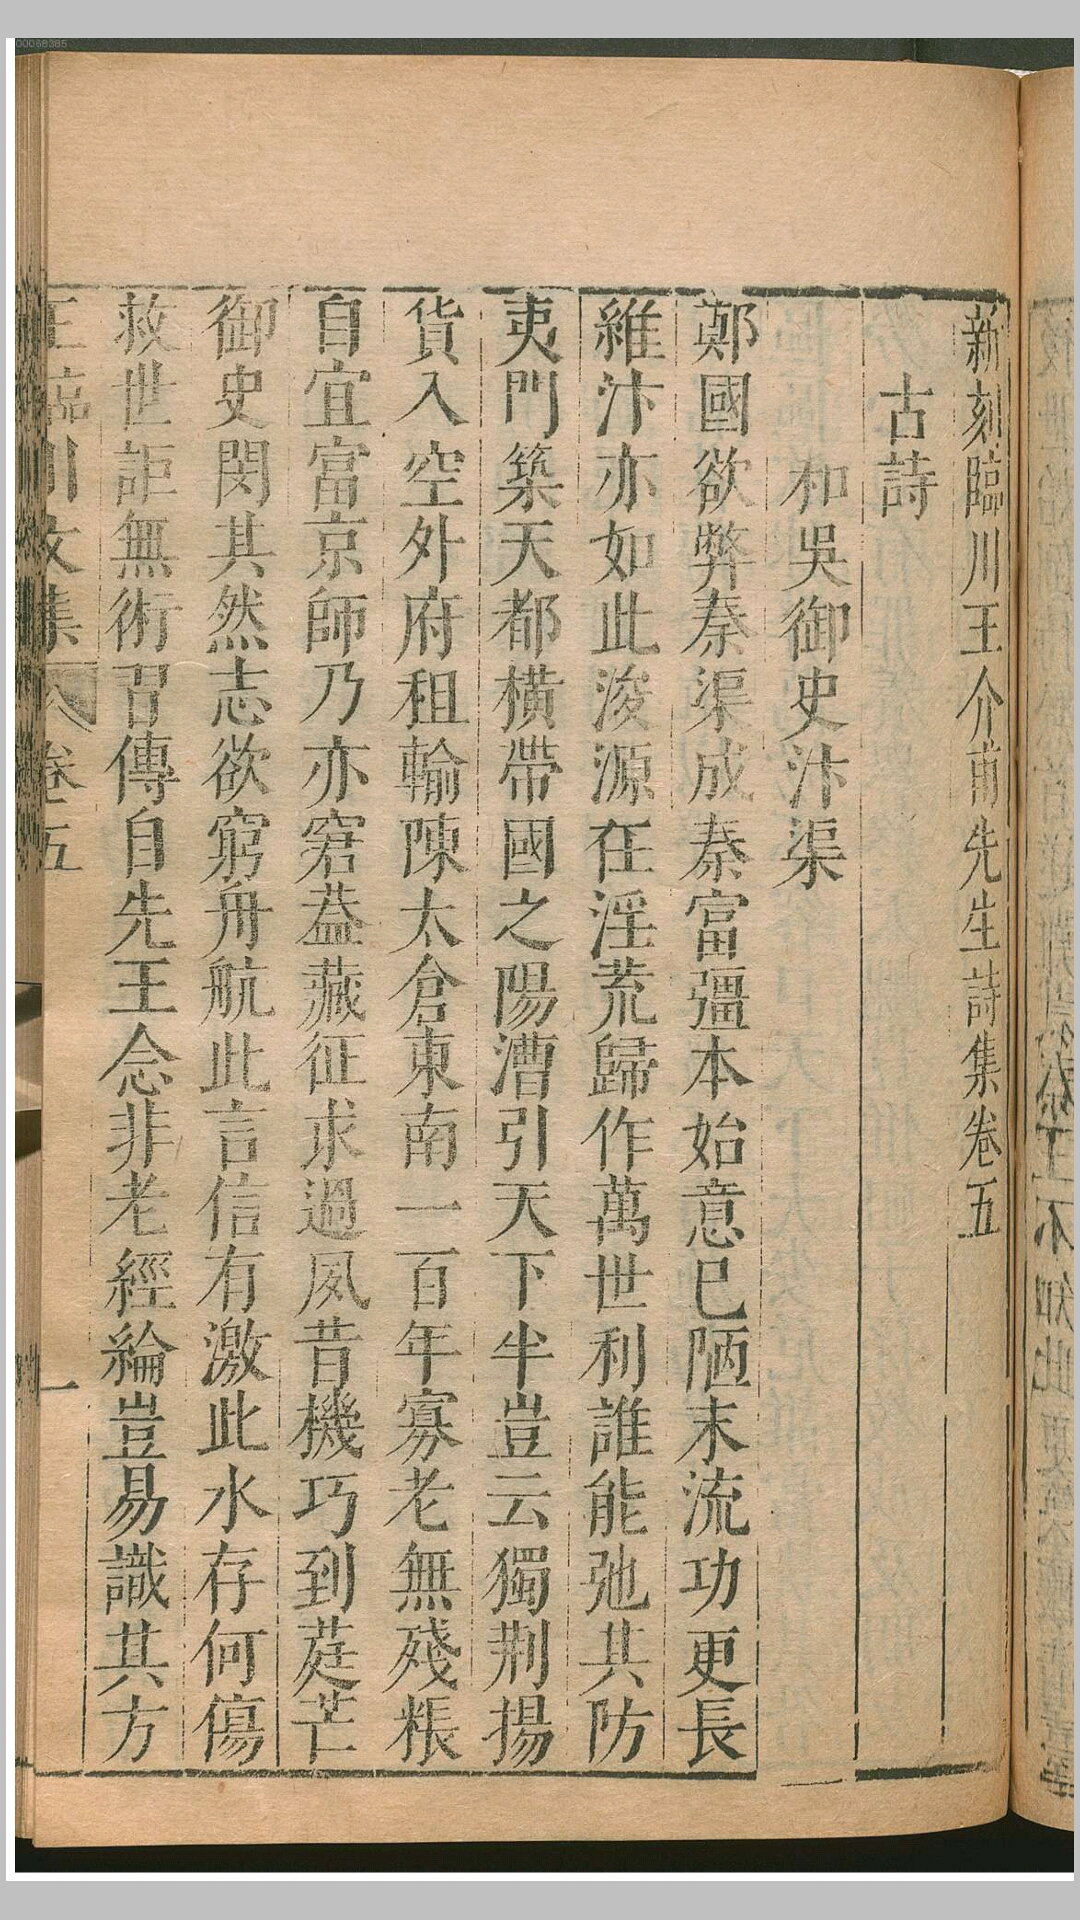 00068385
新刻臨川王介甫先生詩集卷五
古詩
和吳御史汴渠
鄭國欲弊秦渠成秦富彊本始意已陋末流功更長
維汴亦如此浚源在淫荒歸作萬世利誰能弛其防
夷門築天都橫帶國之陽漕引天下半豈云獨荆揚
貨入空外府租輸陳太倉東南一百年寡老無殘粻
自宜富京師乃亦窘葢藏征求過夙昔機巧到莛芒
御史閔其然志欲窮舟航此言信有激此水存何傷
救世詎無術習傳自先王念非老經綸豈易識其方
王臨川文集 卷五 一